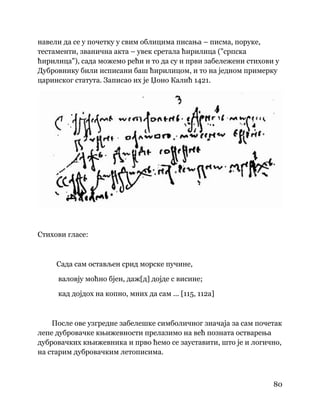 навели да се у почетку у свим облицима писања – писма, поруке,
тестаменти, званична акта – увек сретала ћирилица ("српска
ћирилица"), сада можемо рећи и то да су и први забележени стихови у
Дубровнику били исписани баш ћирилицом, и то на једном примерку
царинског статута. Записао их је Џоно Калић 1421.
Стихови гласе:
Сада сам остављен срид морске пучине,
валовју моћно бјен, даж[д] дојде с висине;
кад дојдох на копно, мних да сам ... [115, 112а]
После ове узгредне забелешке симболичног значаја за сам почетак
лепе дубровачке књижевности прелазимо на већ позната остварења
дубровачких књижевника и прво ћемо се зауставити, што је и логично,
на старим дубровачким летописима.
80